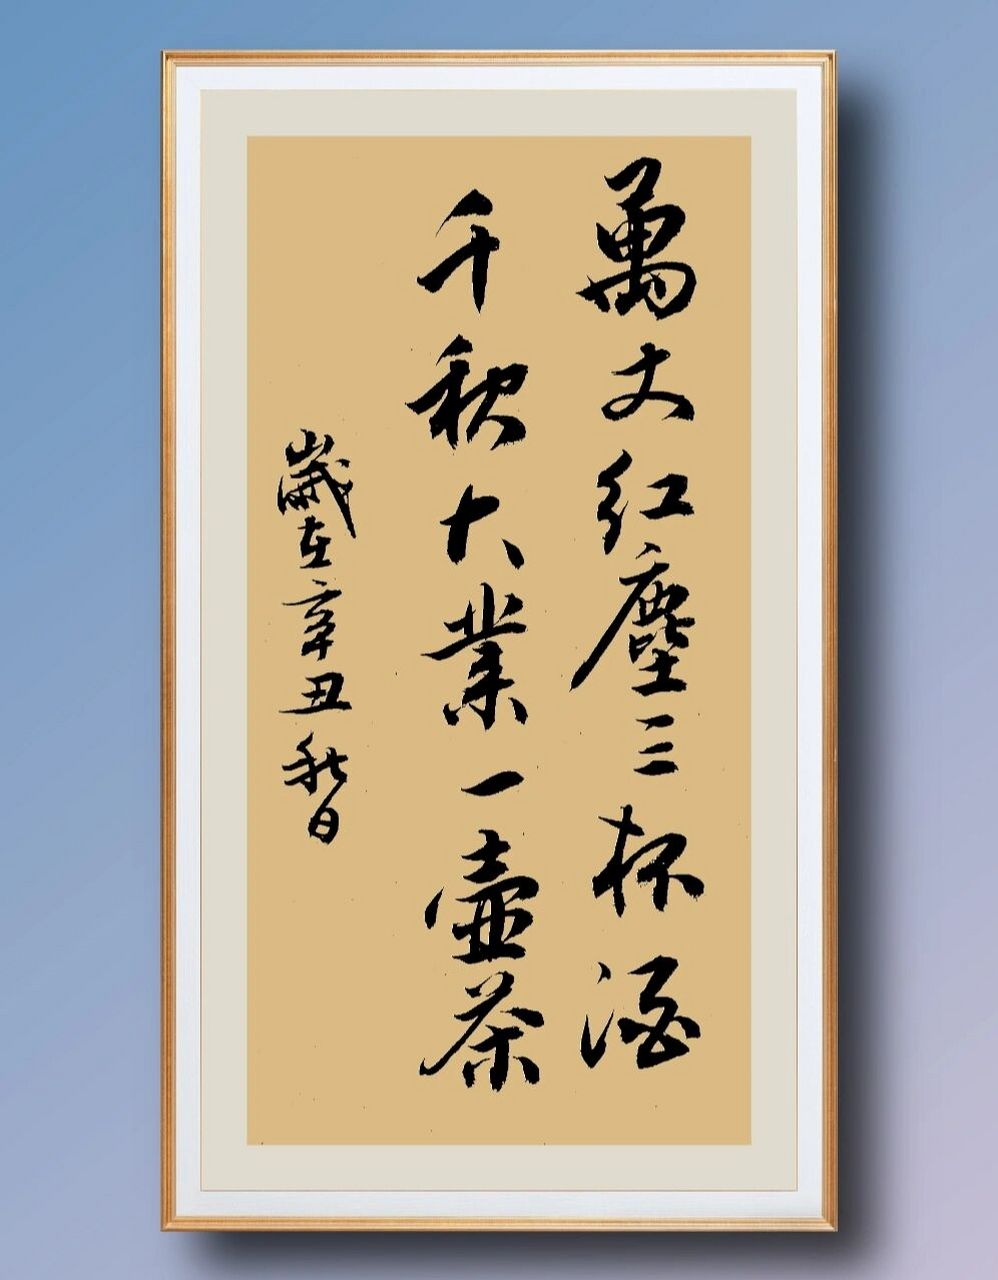 萬丈紅塵三杯酒
千秋大業一壺茶
歲在辛丑秋日